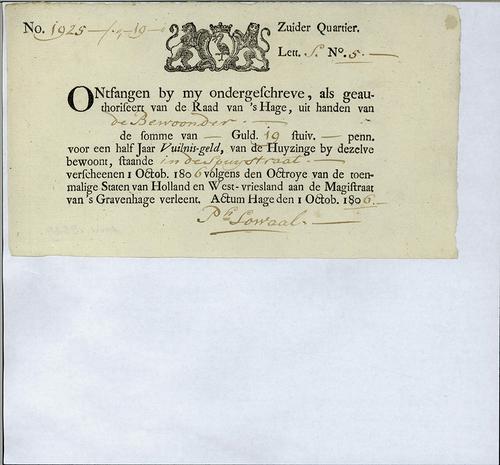 No. 1925 - f. - 19 -
Zuider Quartier.
Lett. S. No. 5.
ONtfangen by my ondergeschreve, als geau-
thoriseert van de Raad van 's Hage, uit handen van
de Bewoonder
de somme van — Guld. 19 stuiv. — penn.
voor een half Jaar Vuilnis-geld, van de Huyzinge by dezelve
bewoont, staande in de Spuystraat
verscheenen 1 Octob. 1806 volgens den Octroye van de toen-
malige Staten van Holland en West-vriesland aan de Magistraat
van 's Gravenhage verleent. Actum Hage den 1 Octob. 1806.